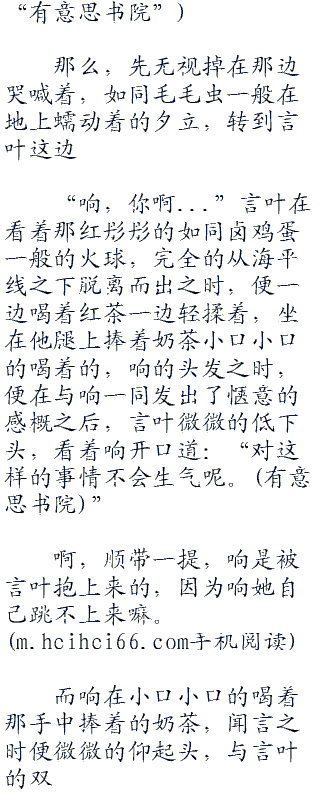 “有意思书院”)
那么，先无视掉在那边
哭喊着，如同毛毛虫一般在
地上蠕动着的夕立，转到言
叶这边
“响，你啊...”言叶在
看着那红彤彤的如同卤鸡蛋
一般的火球，完全的从海平
线之下脱离而出之时，便一
边喝着红茶一边轻揉着，坐
在他腿上捧着奶茶小口小口
的喝着的，响的头发之时，
便在与响一同发出了惬意的
感概之后，言叶微微的低下
头，看着响开口道：“对这
样的事情不会生气呢。(有意
思书院)”
啊，顺带一提，响是被
言叶抱上来的，因为响她自
己跳不上来嘛。
(m.hcihci66.com手机阅读)
而响在小口小口的喝着
那手中捧着的奶茶，闻言之
时便微微的仰起头，与言叶
的双